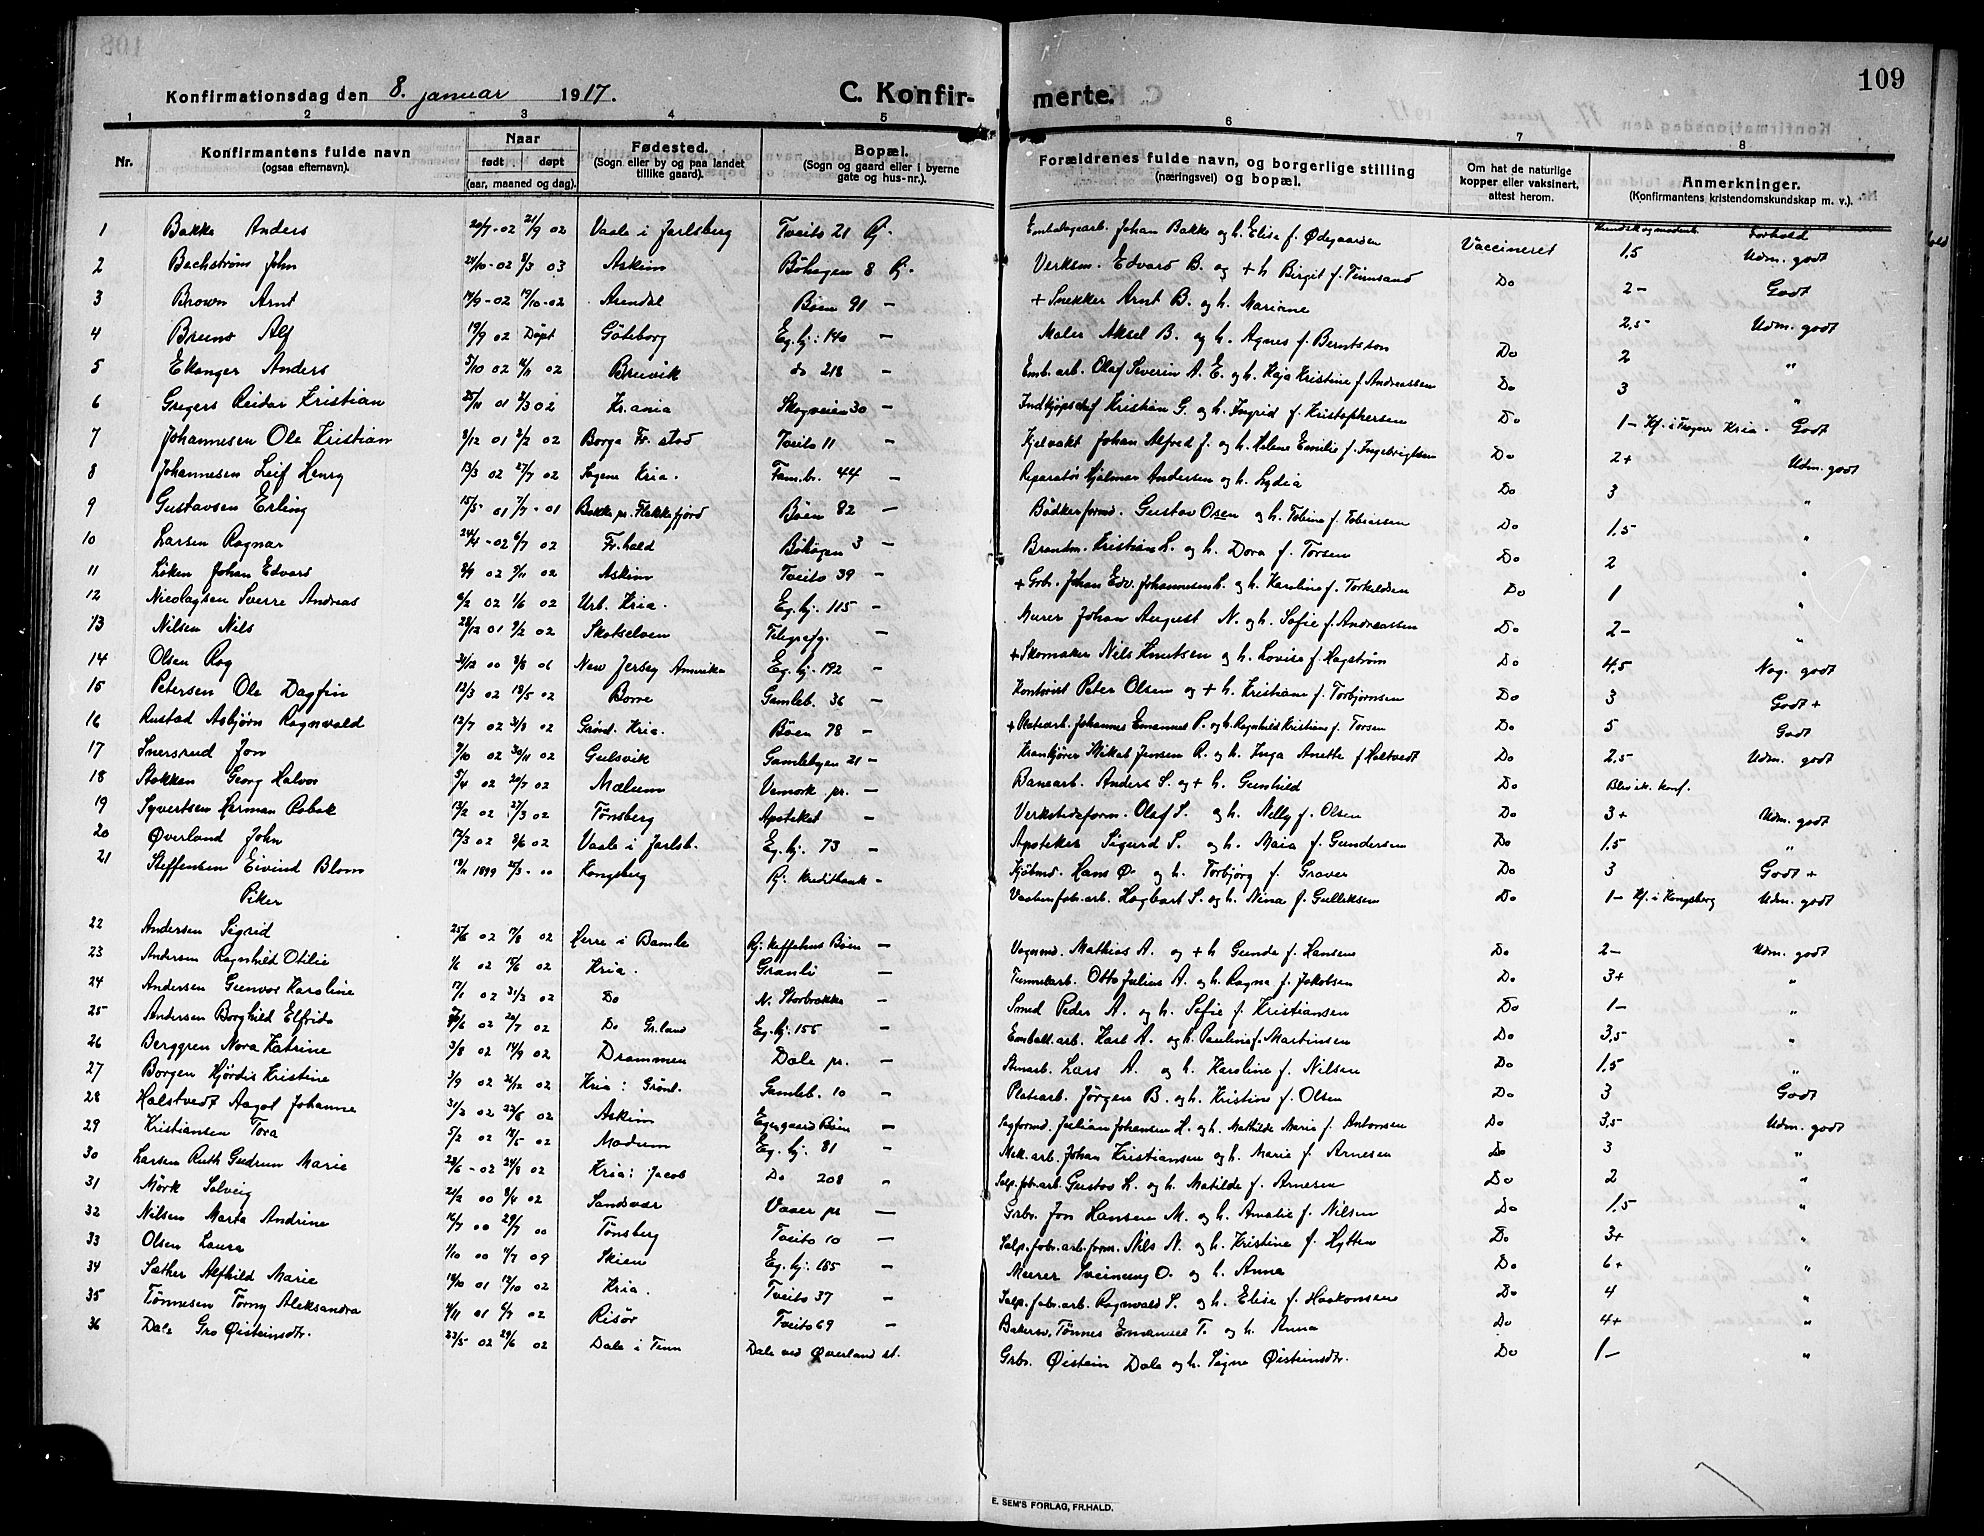 109
Konfirmationsdag den 8. januar 1917. C. Konfirmerte.
1 2 3 4 5 6 7 8
Nr. Konfirmantens fulde navn (ogsaa efternavn). Naar født døpt (aar, maaned og dag). Fødested. (Sogn eller by og paa landet tillike gaard). Bopæl. (Sogn og gaard eller i byerne gate og hus-nr.). Forældrenes fulde navn, og borgerlige stilling (næringsvei) og bopæl. Om hat de naturlige kopper eller vaksinert, attest herom. Anmerkninger. (Konfirmantens kristendomskundskap m. v.).
Forhold
1 Bakke Anders 20/7-02 21/9 02 Vaale i Jarlsberg Tveito 21 Rj. Emballagearb. Johan Bakke og h. Elise f. Ødegaarden Vaccineret 1,5 Udm. godt
2 Bechstrøm John 24/10-02 8/3 03 Askim Böhagen 8 Rj. Verksm. Edvard B. og + h Birgit f. Tinnsand Do 2- Godt
3 Brown Arnt 14/9-02 19/10-02 Arendal Böen 91 - + Snekker Arnt B. og h. Marianne 2,5 Udm. godt
4 Bruno Alf 19/9 02 Döpt Göteborg Eg. hj: 140 - Maler Aksel B. og h. Agnes f. Berntsson Do 2 "
5 Ekanger Anders 5/10 02 16/11 02 Bruvik do 218 - Emb. arb. Olaf Severin A. E. og h. Kaja Kristine f. Andreassen Do 3 "
6 Gregers Reidar Kristian 25/11 01 2/3 02 Kr.ania Skogveien 30 - Indkjöpschef Kristian G. og h. Ingrid f. Kristophersen Do 1- Kf. i Frogner Kria. Godt
7 Johannesen Ole Kristian 8/12 01 2/2 02 Borge Fr. stad Tveito 11 - Hjelvakt Johan Alfred J. og h. Helene Emilie f. Ingebrigtsen Do 2+ Udm. godt
8 Johannesen Leif Henry 13/3 02 27/7 02 Sagene Kria. Fam.br. 44 - Reparatör Hjalmar Andersen og h. Lydia Do 3 "
9 Gustavsen Erling 15/5-01 7/7-01 Bakke pr. Flekkefjord Böen 82 - Bödkerformd. Gustav Osen og h. Tobine f. Tobiassen Do 1,5 "
10 Larsen Ragnar 24/4-02 6/7 02 Fr.hald Böhagen 3 - Brandm. Kristian L. og h. Dora f. Torsen Do 2 "
11 Löken Johan Edvard 8/9 02 9/11 02 Askim Tveito 39 - + Grbr. Johan Edv. Johannesen L. og h. Karoline f. Torkeldsen Do 1 "
12 Nicolaysen Sverre Andreas 9/2 02 1/6 02 Urb. Kria. Eg. hj. 115 - Murer Johan August N. og h. Sofie f. Andreassen Do 2- "
13 Nilsen Nils 28/12 01 9/2 02 Skotselven Telegrafg. - + Skomaker Nils Knutsen og h. Lovise f. Hagström Do 4,5 Nog. godt
14 Olsen Roy 31/12 00 8/8 01 New Jersey Amerika Eg. hj. 192 - Kontorist Peter Olsen og + h. Kristiane f. Torbjörnsen Do 3 Godt +
15 Petersen Ole Dagfin 12/3 02 18/5 02 Borre Gamleb. 36 - + Platearb. Johannes Emanuel P. og h. Ragnhild Kristine f. Torsen Do 5 Godt
16 Rustad Asbjörn Ragnvald 12/7 02 31/8 02 Grönl. Kria. Böen 78 - Krankjörer Mikal Jensen R. og h. Inga Anette f. Holtvedt Do 2,5 Udm. godt
17 Snersrud Jon 7/10 02 30/11 02 Gulsvik Gamlebyen 21 - Banearb. Anders S. og + h. Gunhild Do Blev ik. konf.
18 Stokken Georg Halvor 5/4 02 20/7 02 Mælum Vemork pr. - Verkstedsform. Olaf S. og h. Nelly f. Olsen Do 3+ Udm. godt
19 Syvertsen Herman Robak 13/2 02 27/3 02 Tönsberg Apoteket - Apoteker Sigurd S. og h. Maia f. Gundersen Do 1,5 "
20 Øverland John 12/3 02 8/6 02 Vaale i Jarlsb. Eg. hj. 73 - Kjöbmd. Hans Ø. og h. Torbjörg f. Graver Do 3 Godt +
21 Steffensen Eivind Blom 19/11 1899 25/3-00 Kongsberg Rj. Kreditbank - Vaabenfabr.arb. Hagbart S. og h. Nina f. Gulliksen Do 1- Kf. i Kongsberg Udm. godt
Piker
22 Andersen Sigrid 25/6 02 7/8 02 Herre i Bamle Rj. Kaffehus Böen - Vognmd. Mathias A. og + h Gunda f. Hansen Do 2- Udm. godt
23 Andersen Ragnhild Otilie 1/6 02 15/6 02 Kria. Granli - Tunnelarb. Otto Julius A. og h. Ragna f. Jakobsen Do 3+ "
24 Andersen Gunvor Karoline 12/1 02 31/3 02 Do N. Storbrokke - Smed Peder A. og h. Sofie f. Kristiansen Do 1- "
25 Andersen Borghild Elfrida 02 20/7 02 Do Gr.land Eg. hj. 155 - Emball. arb. Karl A. og h. Pauline f. Martinsen Do 3,5 "
26 Berggren Nora Katrine 3/8 02 14/9 02 Drammen Dale pr. - Stenarb. Lars A. og h. Karoline f. Nilsen Do 1,5 "
27 Borgen Hjördis Kristine 3/9 02 26/12 02 Kria: Grönl. Gamleb. 10 - Platearb. Jörgen B. og h. Kristine f. Olsen Do 3 Godt
28 Halstvedt Aagot Johanne 31/3 02 22/6 02 Askim Egnegaard Böen - Sagformd. Julian Johansen H. og h. Mathilde Marie f. Antonsen Do 3,5 Udm. godt
29 Kristiansen Tora 5/2 02 18/5 02 Modum Eg. hj. 81 - Mek. arb. Johan Kristiansen og h. Marie f. Arnesen Do 3 "
30 Larsen Ruth Gudrun Marie 23/6-02 24/8 02 Kria: Jacob Do 208 - Salp. fabr.arb. Gustav L. og h. Matilde f. Arnesen Do 2 "
31 Mörk Solveig 21/2 00 8/4 02 Sandvær Vaaer pr - Grbr. Jon Hansen M. og h. Amalie f. Nilsen Do 1,5 "
32 Nilsen Marta Andrine 16/7 00 29/7 00 Tönsberg Tveito 10 - Salp. fabr. arb. form. Nils N. og h. Kristine f. Hytten Do 3+ "
33 Olsen Laura 1/10 00 11/7 09 Skien Eg. hj. 165 - Murer Sveinung O. og h. Anna Do 6+ "
34 Sæther Alfhild Marie 19/10 01 12/10 02 Kria. Tveito 37 - Salp. fabr. arb. Ragnvald S. og h. Elise f. Haakonsen Do 4 "
35 Tönnesen Torny Aleksandra 4/11 01 6/7 02 Risör Tveito 69 - Bakersv. Tönnes Emanuel T. og h. Anna Do 4+ "
36 Dale Gro Øisteinsdtr. 23/5 02 29/6 02 Dale i Tinn Dale ved Øverland st. Grbr. Øistein Dale og h. Signe Øisteinsdtr. Do 1- "
E. SEM'S FORLAG, FR.HALD.